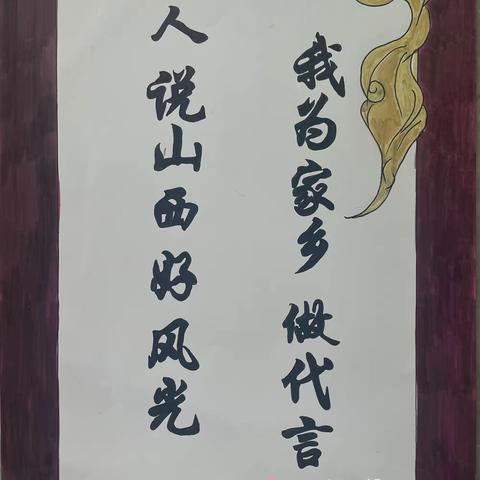 我为家乡 做代言
人说山西好风光